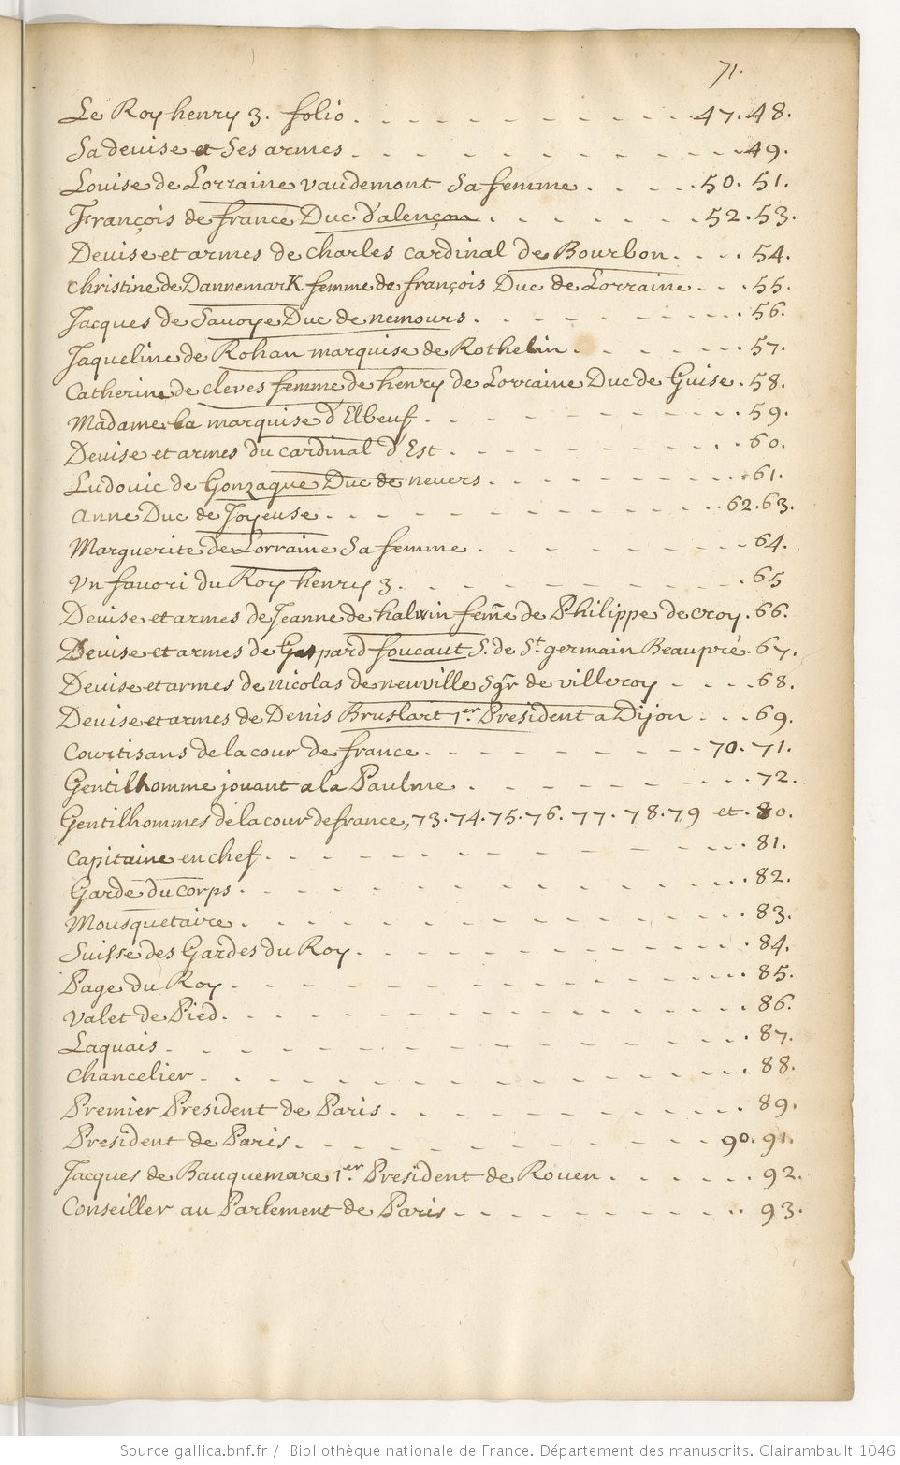 71.
Le Roy henry 3. folio . - - - - - - - - - 47. 48.
Sa devise et Ses armes - - - - - - - - - 49.
Louise de Lorraine vaudemont Sa femme . - - - 50. 51.
François de france Duc d'alençon . - - - - - 52. 53.
Devise et armes de Charles Cardinal de Bourbon . - - 54.
Christine de DannemarK femme de françois Duc de Lorraine - - 55.
Jacques de Savoye Duc de nemours . - - - - - - 56.
Jaqueline de Rohan marquise de Rothelin . - - - - 57.
Catherine de cleves femme de henry de Lorraine Duc de Guise . 58.
Madame la marquise d'Elbeuf - - - - - - - - 59.
Devise et armes du cardinal d'Est - - - - - - - 60.
Ludovic de Gonzague Duc de nevers . - - - - - - 61.
Anne Duc de Joyeuse . - - - - - - - - 62. 63.
Marguerite de Lorraine Sa femme - - - - - - - 64.
Un favori du Roy henry 3. - - - - - - - - 65
Devise et armes de Jeanne de halwin fem̃e de Philippe de croy . 66.
Devise et armes de Gaspard foucaut S. de St. germain Beaupré . 67.
Devise et armes de nicolas de neuville Sgr̃ de villeroy - - - 68.
Devise et armes de Denis Bruslart 1er. President a Dijon . - - 69.
Courtisans de la cour de france - - - - - - - 70. 71.
Gentilhomme jouant a la Paulme . - - - - - - 72.
Gentilhommes de la cour de france, 73. 74. 75. 76. 77. 78. 79 et . 80.
Capitaine en chef . - - - - - - - - - - 81.
Garde du corps . - - - - - - - - - - - 82.
Mousquetaire . - - - - - - - - - - - 83.
Suisse des Gardes du Roy . - - - - - - - - 84.
Page du Roy - - - - - - - - - - - - 85.
Valet de Pied . - - - - - - - - - - - 86.
Laquais - - - - - - - - - - - - - 87.
Chancelier - - - - - - - - - - - - 88.
Premier President de Paris . - - - - - - - 89.
President de Paris - - - - - - - - - 90. 91.
Jacques de Bauquemare 1er. President de Rouen . - - - 92.
Conseiller au Parlement de Paris - - - - - - - 93.
Source gallica.bnf.fr / Bibliothèque nationale de France. Département des manuscrits. Clairambault 1046